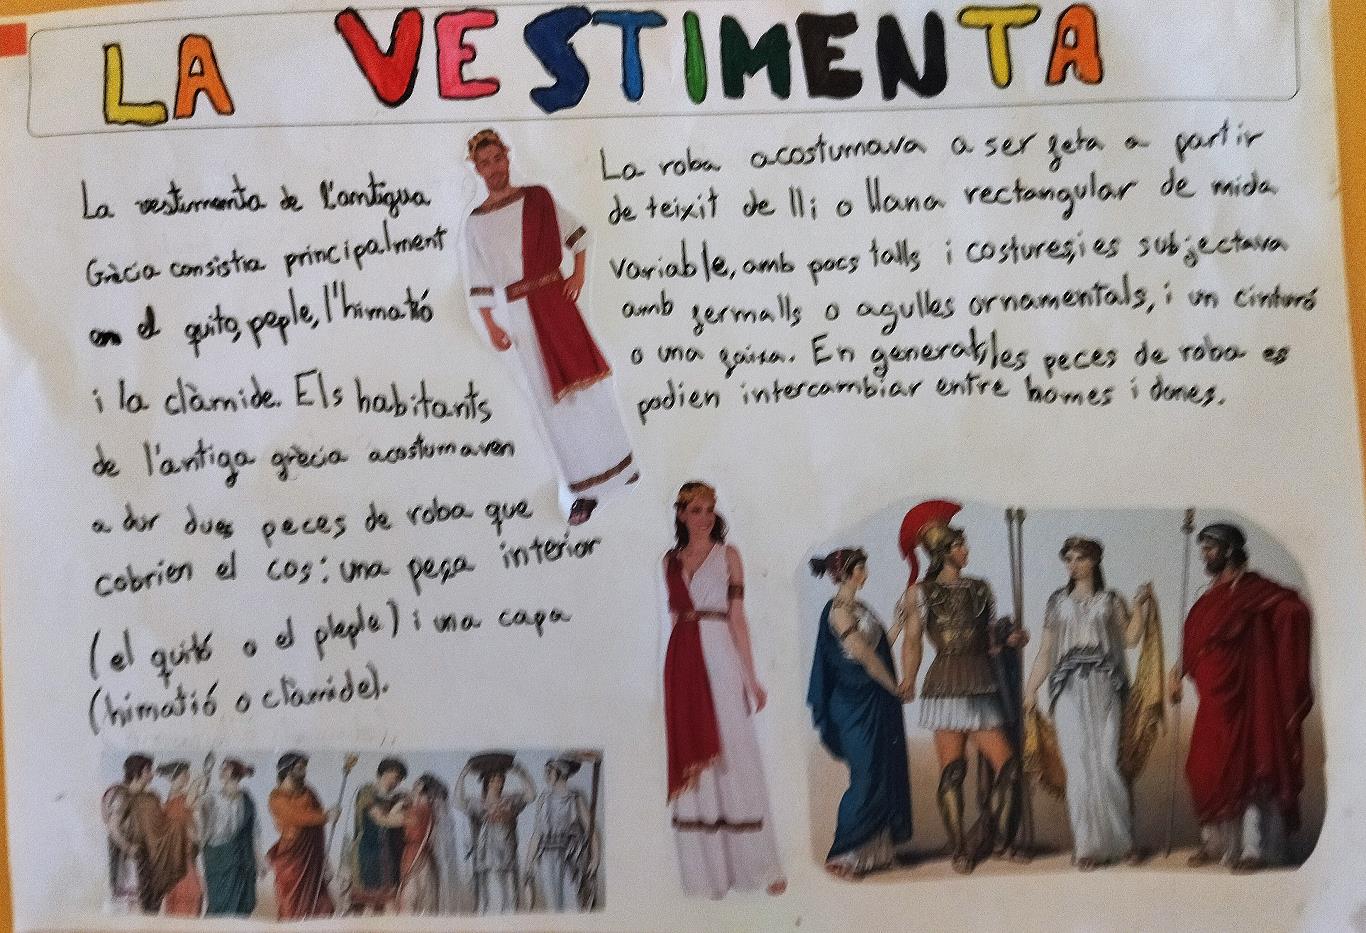 LA VESTIMENTA
La vestimenta de l'antigua
Grècia consistia principalment
en el quito, peple, l'himatió
i la clàmide. Els habitants
de l'antiga grècia acostumaven
a dur dues peces de roba que
cobrien el cos: una peça interior
(el quitó o el pleple) i una capa
(himatió o clàmide).
La roba acostumava a ser feta a partir
de teixit de lli o llana rectangular de mida
variable, amb pocs talls i costures, i es subjectava
amb fermalls o agulles ornamentals, i un cinturó
o una faixa. En general, les peces de roba es
podien intercambiar entre homes i dones.